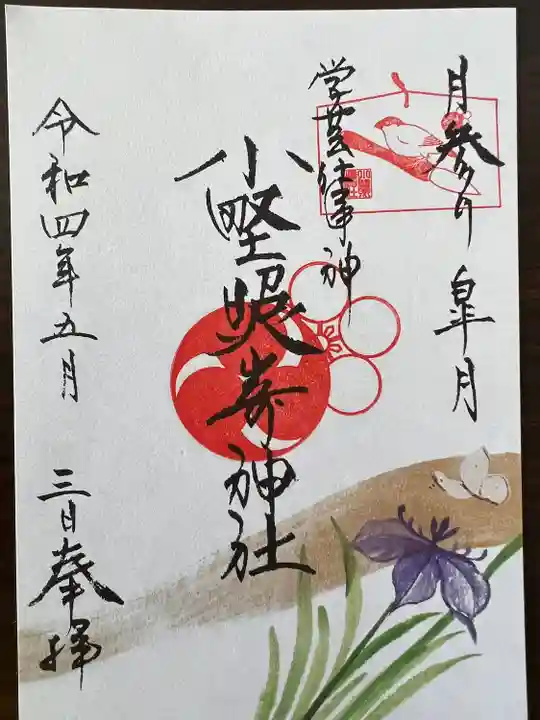 月参り 皐月
学芸仕事神
小野照崎神社
令和四年五月 三日奉拝